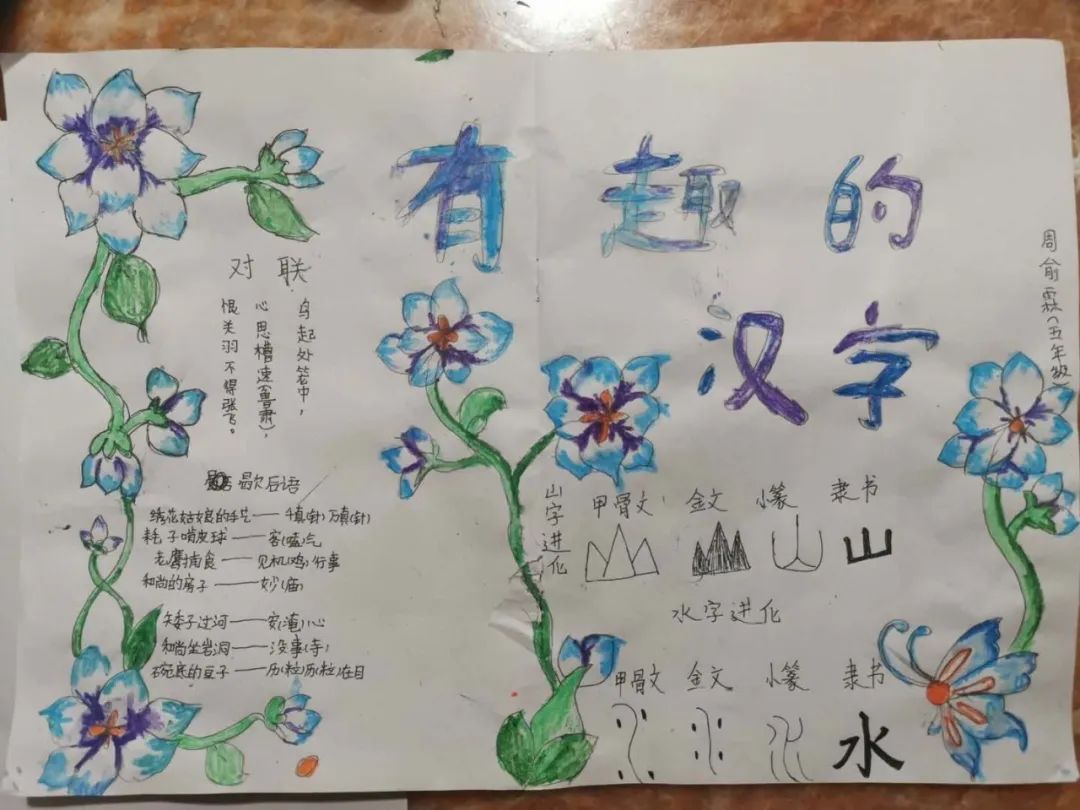 有趣的
汉字
周俞霖(五年级)
对联
鸟起处笼中，
心思槽速(鲁肃)，
恨关羽不得张飞。
歇后语
绣花姑娘的手艺——千填(针)万填(针)
耗子啃皮球——客(嗑)气
老鹰捕食——见机(鸡)行事
和尚的房子——妙(庙)
矮子过河——安(淹)心
和尚坐岩洞——没事(寺)
碗底的豆子——历(粒)历(粒)在目
山字进化
甲骨文 金文 小篆 隶书
山
水字进化
甲骨文 金文 小篆 隶书
水